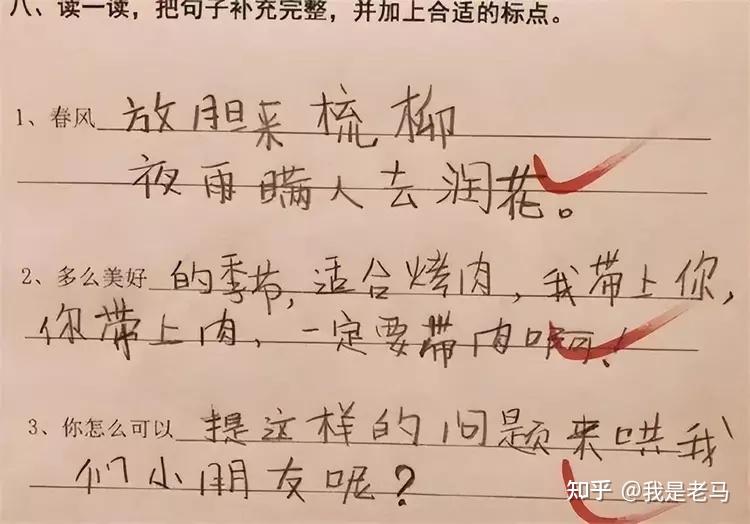 八、读一读，把句子补充完整，并加上合适的标点。
1、春风放胆来梳柳
夜雨瞒人去润花。
2、多么美好的季节，适合烤肉，我带上你，
你带上肉，一定要带肉啊！
3、你怎么可以提这样的问题来哄我
们小朋友呢？
知乎 @我是老马